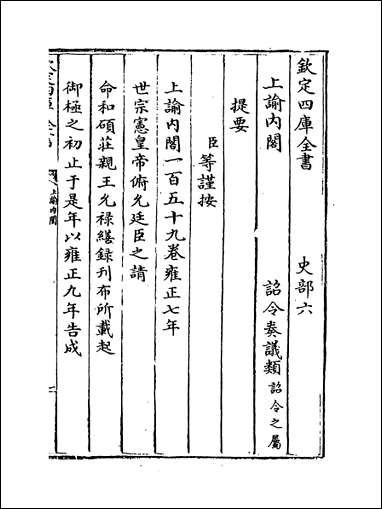 欽定四庫全書 史部六
上諭內閣 詔令奏議類 詔令之屬
提要
臣等謹按
上諭內閣一百五十九卷雍正七年
世宗憲皇帝俯允廷臣之請
命和碩莊親王允祿繕錄刊布所載起
御極之初止于是年以雍正九年告成
上諭內閣